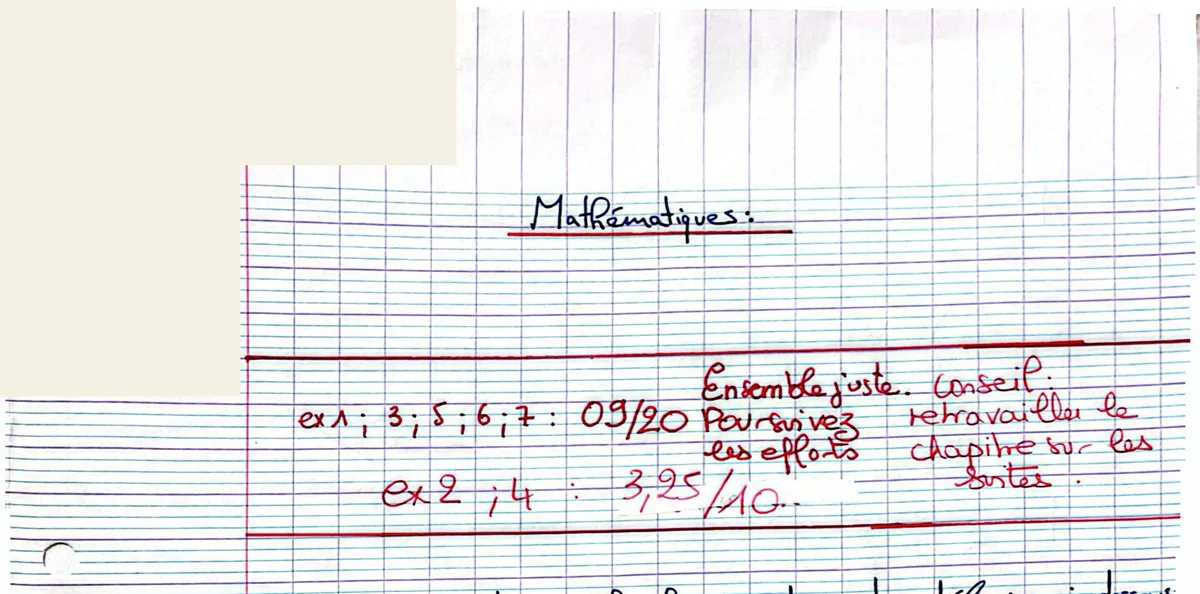 Mathématiques:
Ensemble juste. Conseil:
ex 1 ; 3 ; 5 ; 6 ; 7 : 09/20 Poursuivez retravailler le
les efforts chapitre sur les
suites.
ex 2 ; 4 : 3,25/10